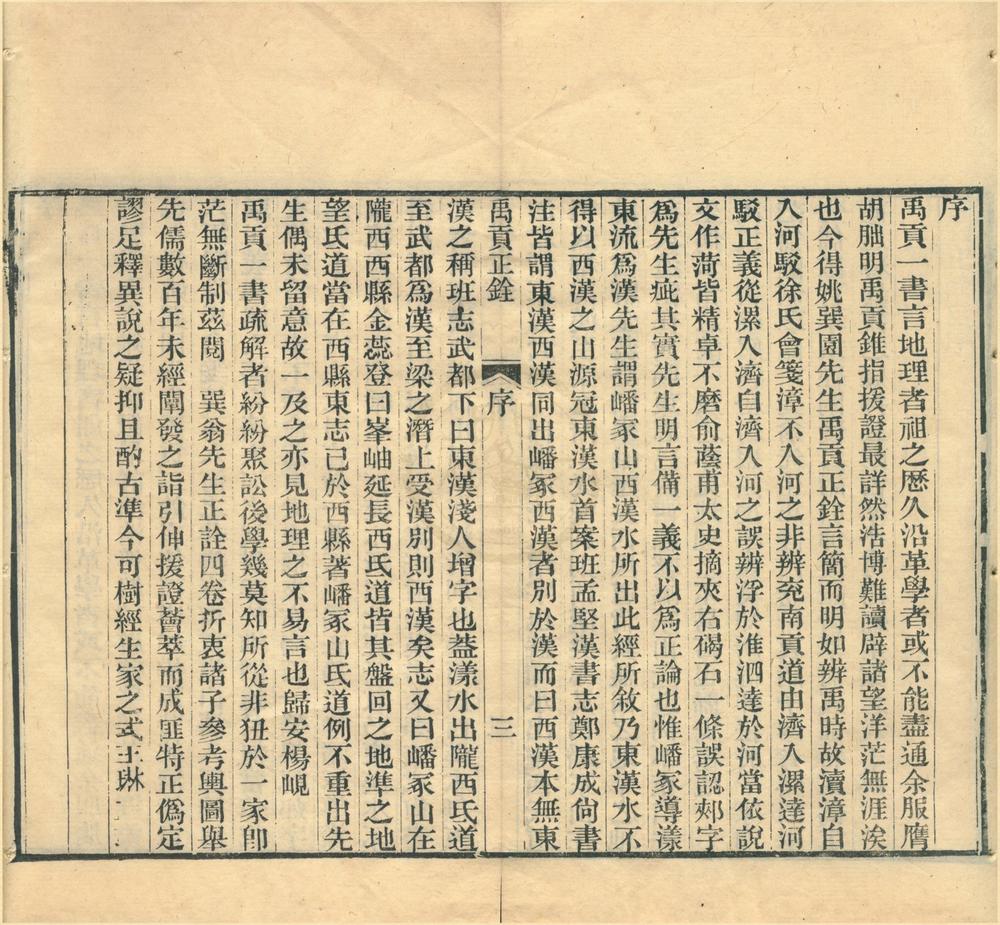 序
禹貢一書言地理者祖之歷久沿革學者或不能盡通余服膺
胡朏明禹貢錐指援證最詳然浩博難讀辟諸望洋茫無涯涘
也今得姚巽園先生禹貢正銓言簡而明如辨禹時故瀆漳自
入河駁徐氏會箋漳不入河之非辨兗南貢道由濟入漯達河
駁正義從漯入濟自濟入河之誤辨浮於淮泗達於河當依說
文作菏皆精卓不磨俞蔭甫太史摘夾右碣石一條誤認郟字
爲先生疵其實先生明言備一義不以爲正論也惟嶓冢導漾
東流爲漢先生謂嶓冢山西漢水所出此經所敘乃東漢水不
得以西漢之山源冠東漢水首案班孟堅漢書志鄭康成尙書
注皆謂東漢西漢同出嶓冢西漢者別於漢而曰西漢本無東
禹貢正銓
序
三
漢之稱班志武都下曰東漢淺人增字也葢漾水出隴西氐道
至武都爲漢至梁之潛上受漢別則西漢矣志又曰嶓冢山在
隴西西縣金蕊登曰峯岫延長西氐道皆其盤回之地準之地
望氐道當在西縣東志已於西縣著嶓冢山氐道例不重出先
生偶未留意故一及之亦見地理之不易言也歸安楊峴
禹貢一書疏解者紛紛聚訟後學幾莫知所從非狃於一家卽
茫無斷制茲閱 巽翁先生正詮四卷折衷諸子參考輿圖舉
先儒數百年未經闡發之詣引伸援證薈萃而成匪特正僞定
謬足釋異說之疑抑且酌古準今可樹經生家之式王